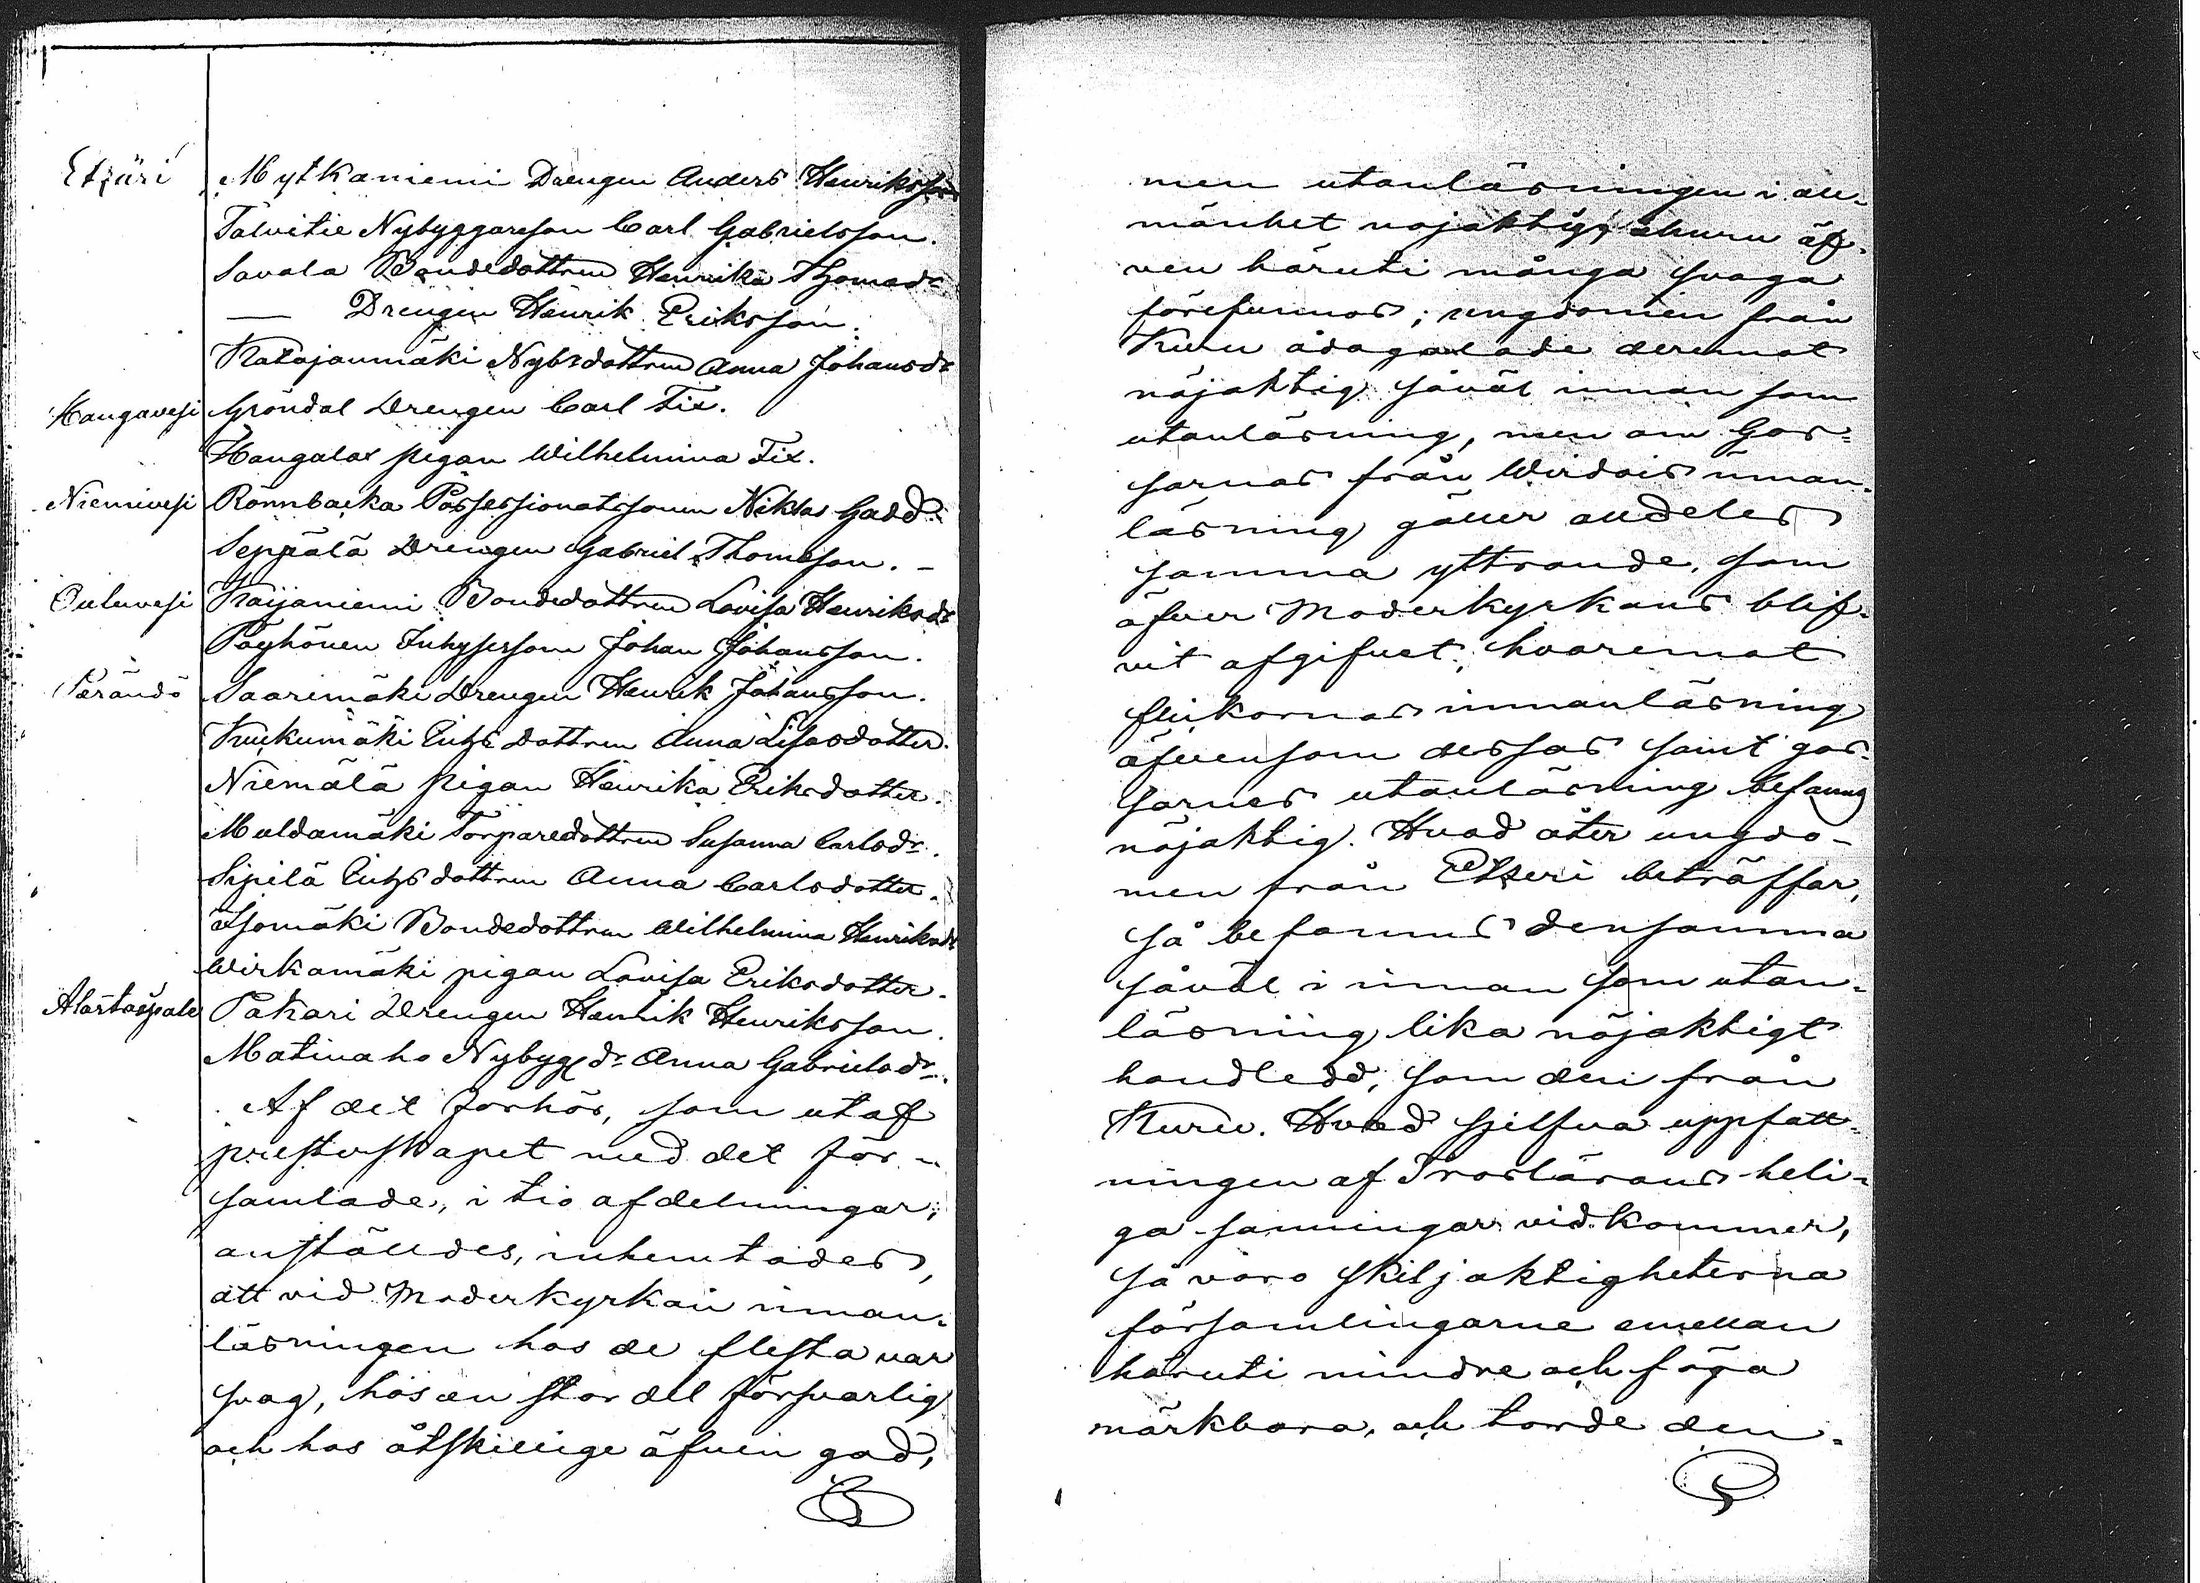 Etzäri Mytkaniemi Drengen Anders Henriksson
Talvitie Nybyggaresson Carl Gabrielsson.
Savola Bondedottren Henrika Thomasdr
— Drengen Henrik Eriksson.
Katajanmäki Nybrdottren Anna Johansdr
Kangavesi Gröndal Drengen Carl Fix.
Hangalax pigan Wilhelmina Fix.
Niemivesi Rönnbacka Possessionatssonen Niklas Gadd.
Seppälä Drengen Gabriel Thomsson. –
Ouluvesi Kaijaniemi Bondedottren Lovisa Henriksdr
Pöyhönen Inhysesson Johan Johansson.
Perändö Saarimäki Drengen Henrik Johansson.
Kuukumäki Inhs Dottren Anna Lisasdotter.
Niemälä pigan Henrika Eriksdotter.
Muldamäki Torparedottren Susanna Carlsdr.
Sipilä Inhs dottren Anna Carlsdotter.
Isomäki Bondedottren Wilhelmina Henriksdr
Wirkamäki pigan Lovisa Eriksdotter.
Alastaipale Pakari Drengen Henrik Henriksson.
Matinaho Nybygg dr Anna Gabrielsdr.
Af det förhör, som utaf
presterskapet med det för-
samlade, i tio afdelningar,
anställdes, inhemtades,
att vid Moderkyrkan innan-
läsningen hos de flesta var
svag, hos en stor del försvarlig
och hos åtskillige äfven god,
men utanläsningen i all-
mänhet nöjaktig, ehuru äf-
ven häruti många svaga
förefunnos; ungdomen från
Kuru ådagalade deremot
nöjaktig såväl innan som
utanläsning, men om Gos-
sarnas från Wirdois innan-
läsning gäller alldeles
samma yttrande, som
öfver Moderkyrkans blif-
vit afgifvet; hvaremot
flickornas innanläsning
äfvensom dessas samt gos-
sarnes utanläsning befanns
nöjaktig. Hvad åter ungdo-
men från Etseri beträffar,
så befanns densamma
såväl i innan som utan-
läsning lika nöjaktigt
handledd, som den från
Kuru. Hvad sjelfva uppfatt-
ningen af Troslärans heli-
ga sanningar vidkommer,
så voro skiljaktigheterna
församlingarne emellan
häruti mindre och föga
märkbara, och torde den-